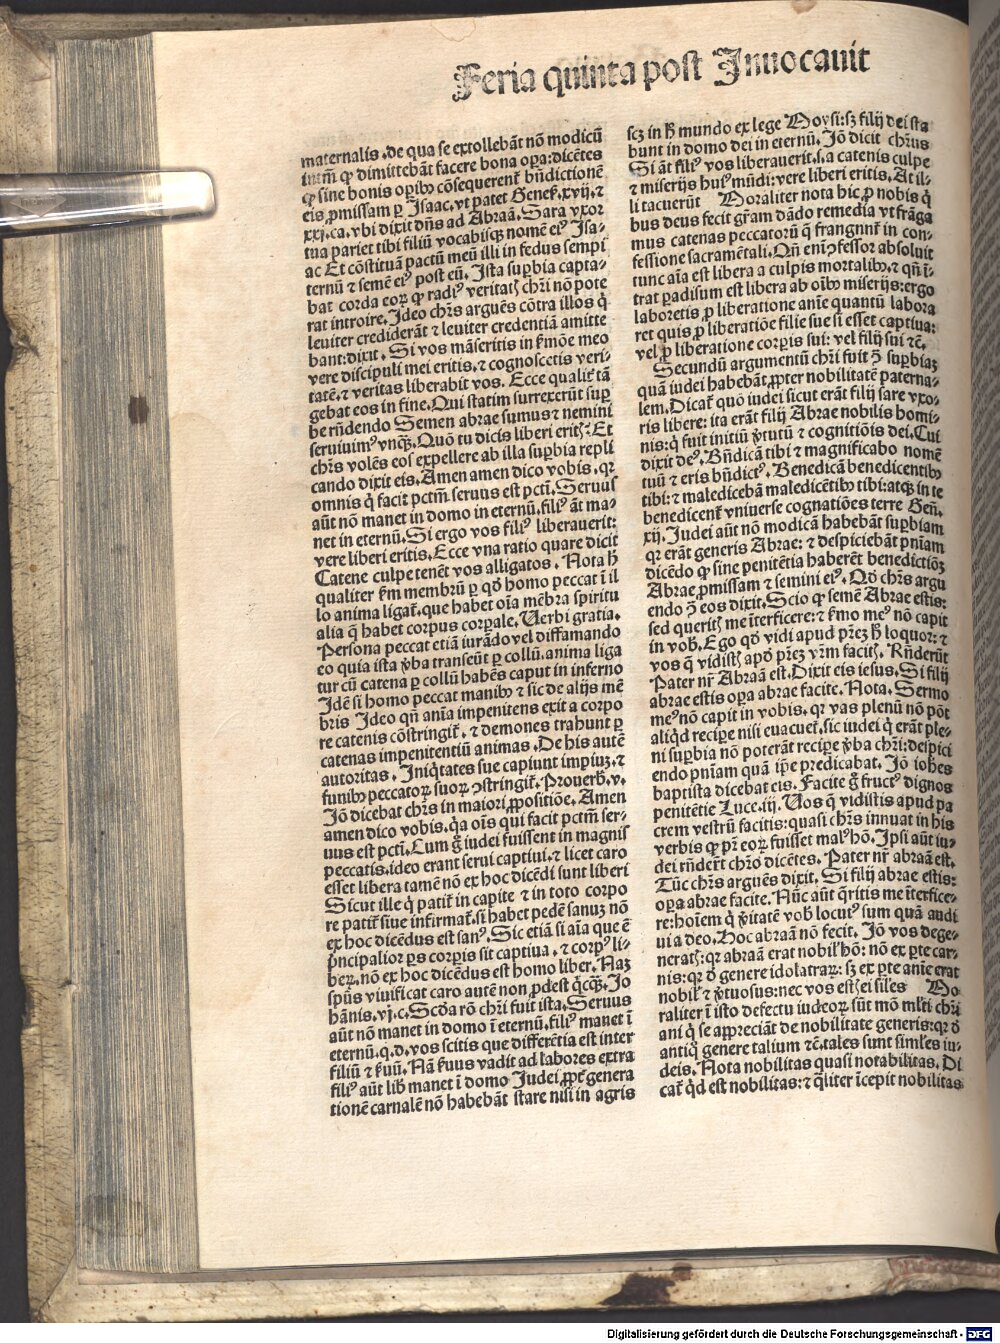 Feria quinta post Inuocauit
maternalis .de qua se extollebāt nō modicū
intm̄ ꝙ dimittebāt facere bona oꝑa:dicētes
ꝙ sine bonis opibꝫ cōsequerent̄ bn̄dictionē
eis ꝓmissam ꝑ Isaac.vt patet Genes̄.xvij.⁊
xxj.ca.vbi dixit dn̄s ad Abraā. Sara vxor
tua pariet tibi filiū vocabisqꝫ nomē eiꝰ Isa⸗
ac Et cōstituā pactū meū illi in fedus sempi
ternū ⁊ semē eiꝰ post eū. Ista suꝑbia capta⸗
bat corda eoꝝ ꝙ radiꝰ veritatꝭ chr̄i nō pote
rat introire.Ideo chr̄s arguēs cōtra illos q̇
leuiter crediderāt ⁊ leuiter credentiā amitte
bant:dixit. Si vos māseritis in ẜmōe meo
vere discipuli mei eritis.⁊ cognoscetis veri⸗
tatē.⁊ veritas liberabit vos. Ecce qualit̄ tā
gebat eos in fine.Qui statim surrexerūt suꝑ
be rn̄dendo Semen abrae sumus ⁊ nemini
seruiuimꝰ vnqꝫ.Quō tu dicis liberi eritꝭ? Et
chr̄s volēs eos expellere ab illa suꝑbia repli
cando dixit eis.Amen amen dico vobis.qꝛ
omnis q̇ facit pctm̄ seruus est pcti̅.Seruus
aūt nō manet in domo in eternū.filiꝰ āt ma⸗
net in eternū.Si ergo vos filiꝰ liberauerit:
vere liberi eritis.Ecce vna ratio quare dicit
Catene culpe tenēt vos alligatos. Nota h̄
qualiter ẜm membrū ꝑ qd̄ homo peccat ī il
lo anima ligat̄.que habet oīa mēbra spiritu
alia q̄ habet corpus corꝑale. Uerbi gratia.
Persona peccat etiā iurādo vel diffamando
eo quia ista v̄ba transeūt ꝑ collū.anima liga
tur cū catena ꝑ collū habēs caput in inferno
Idē si homo peccat manibꝫ ⁊ sic de alijs mē
bris Ideo qn̄ anīa impenitens exit a corpo
re catenis cōstringit̄. ⁊ demones trahunt ꝑ
catenas impenitentiū animas .De his autē
autoritas. Iniq̇tates sue capiunt impiuꝫ.⁊
funibꝫ peccatoꝝ suoꝝ ꝯstringit̄.Prouerb̄.v.
Iō dicebat chr̄s in maiori ꝓpositiōe. Amen
amen dico vobis.q̇a oīs qui facit pctm̄ ser⸗
uus est pcti̅.Cum g̊ iudei fuissent in magnis
peccatis.ideo erant serui captiui.⁊ licet caro
esset libera tamē nō ex hoc dicēdi sunt liberi
Sicut ille q̇ patit̄ in capite ⁊ in toto corpo
re patit̄ siue infirmat̄.si habet pedē sanuꝫ nō
ex hoc dicēdus est sanꝰ.Sic etiā si aīa que ē
pͥncipalior ꝑs corꝑis sit captiua . ⁊ corpꝰ li⸗
beꝝ.nō ex hoc dicēdus est homo liber. Naꝫ
spūs viuificat caro autē non ꝓdest q̇cqꝫ. Jo
hānis.vj.c.Scd̄a rō chr̄i fuit ista.Seruus
aūt nō manet in domo ī eternū.filiꝰ manet ī
eternū.q.d.vos scitis que differētia est inter
filiū ⁊ ẜuū. Nā ẜuus vadit ad labores extra
filiꝰ aūt lib̄ manet ī domo Iudei ꝓpt̄ genera
tionē carnalē nō habebāt stare nisi in agris
scꝫ in h̄ mundo ex lege Moysi:sꝫ filij dei sta
bunt in domo dei in eternū. Iō dicit chr̄us
Si āt filiꝰ vos liberauerit.s.a catenis culpe
⁊ miserijs huiꝰ mūdi:vere liberi eritis.At il⸗
li tacuerūt Moraliter nota hic ꝓ nobis q̇
bus deus fecit gr̄am dādo remedia vt frāga
mus catenas peccatorū q̄ frangnnt̄ in con⸗
fessione sacramētali.Qn̄ eni̅ ꝯfessor absoluit
tunc aīa est libera a culpis mortalibꝫ.⁊ qn̄ ī⸗
trat ꝑadisum est libera ab oībꝫ miserijs:ergo
laboretis ꝓ liberatione anīe quantū labora
ret quis ꝓ liberatiōe filie sue si esset captiua:
vel ꝓ liberatione corꝑis sui: vel filij sui ⁊c̄.
Secundū argumentū chr̄i fuit ꝯ̄ suꝑbiaꝫ
quā iudei habebāt ꝓpter nobilitatē paterna⸗
lem.Dicat̄ quō iudei sicut erāt filij sare vxo⸗
ris libere: ita erāt filij Abrae nobilis homi⸗
nis:q̇ fuit initiū v̄tutū ⁊ cognitiōis dei.Cui
dixit deꝰ. Bn̄dicā tibi ⁊ magnificabo nomē
tuū ⁊ eris bn̄dictꝰ. Benedicā benedicentibꝫ
tibi: ⁊ maledicebā maledicētibꝫ tibi:atqꝫ in te
benedicent̄ vniuerse cognatiōes terre Gen̄.
xij. Iudei aūt nō modicā habebāt suꝑbiam
qꝛ erāt generis Abrae: ⁊ despiciebāt pn̄iam
dicēdo ꝙ sine penitētia haberēt benedictiōꝫ
Abrae ꝓmissam ⁊ semini eiꝰ. Qd̄ chr̄s argu
endo ꝯ̄ eos dixit.Scio ꝙ semē Abrae estis:
sed queritꝭ me īterficere: ⁊ ẜmo meꝰ nō capit
in vob̄.Ego qd̄ vidi apud pr̄eꝫ h̄ loquor: ⁊
vos q̄ vidistꝭ apd̄ pr̄eꝫ vr̄m facitꝭ. Rn̄derūt
Pater nr̄ Abraā est.Dixit eis iesus.Si filij
abrae estis oꝑa abrae facite. Nota. Sermo
meꝰ nō capit in vobis. qꝛ vas plenū nō pōt
aliq̇d reciꝑe nisi euacuet̄.sic iudei q̇ erāt ple⸗
ni suꝑbia nō poterāt reciꝑe v̄ba chr̄i:despici
endo pn̄iam quā ip̄e predicabat. Iō ioh̄es
baptista dicebat eis. Facite g̊ fructꝰ dignos
penitētie Luce.iij. Uos q̄ vidistis apud pa
crem vestrū facitis:quasi chr̄s innuat in his
verbis ꝙ pr̄ eoꝝ fuisset malꝰ hō. Ipsi aūt iu⸗
dei rn̄dert̄ chr̄o dicētes. Pater nr̄ abraā est.
Tūc chr̄s arguēs dixit. Si filij abrae estis:
oꝑa abrae facite. Nūc aūt q̄ritis me īterfice⸗
re:hoīem q̇ v̄itatē vob̄ locutꝰ sum quā audi
ui a deo.Hoc abraā nō fecit. Iō vos dege⸗
neratꝭ:qꝛ abraā erat nobil̄ hō: nō ex ꝑte car⸗
nis:qꝛ d̄ genere idolatraꝝ: sꝫ ex ꝑte anīe erat
nobil̄ ⁊ v̄tuosus:nec vos estꝭ ei sil̄es Mo
raliter ī isto defectu iudeoꝝ sūt mō ml̄ti chr̄i
ani q̇ se appreciāt de nobilitate generis:qꝛ d̄
antiq̇ genere talium ⁊c̄.tales sunt siml̄es iu⸗
deis. Nota nobilitas quasi notabilitas. Di
cat̄ q̇d est nobilitas: ⁊ q̄liter īcepit nobilitas
Digitalisierung gefördert durch die Deutsche Forschungsgemeinschaft - DFG